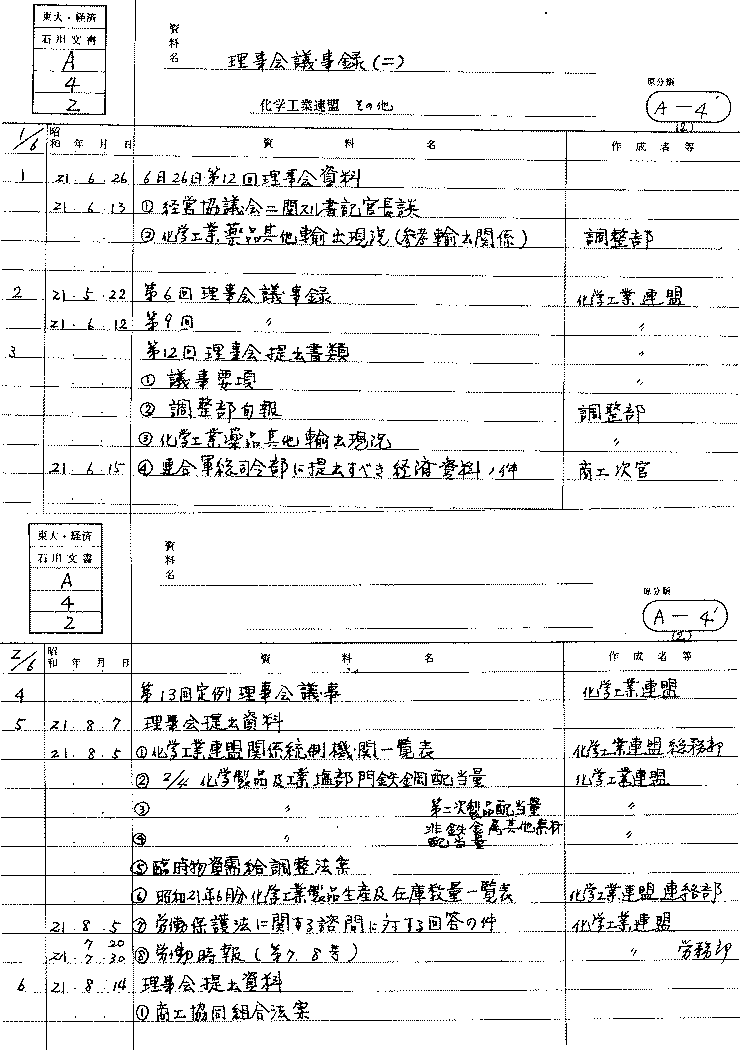 東大・経済
石川文書
A
4
2
資料名 理事会議事録(二)
化学工業連盟 その他
原分類
A-4'
(2)
1/6 昭和 年 月 日 資 料 名 作 成 者 等
1 21.6.26 6月26日第12回理事会資料
21.6.13 ①経営協議会ニ関スル書記官長談
②化学工業薬品其他輸出現況(参考輸出関係) 調整部
2 21.5.22 第6回理事会議事録 化学工業連盟
21.6.12 第9回 〃 〃
3 第12回理事会提出書類 〃
①議事要項 〃
②調整部旬報 調整部
③化学工業薬品其他輸出現況 〃
21.6.15 ④連合軍総司令部に提出すべき経済資料ノ件 商工次官
東大・経済
石川文書
A
4
2
資料名
原分類
A-4'
(2)
2/6 昭和 年 月 日 資 料 名 作 成 者 等
4 第13回定例理事会議事 化学工業連盟
5 21.8.7 理事会提出資料
21.8.5 ①化学工業連盟関係統制機関一覧表 化学工業連盟総務部
② 2/4 化学製品及工業塩部門鉄鋼配当量 化学工業連盟
③ 〃 第二次製品配当量 〃
④ 〃 非鉄金属其他素材配当量 〃
⑤臨時物資需給調整法案
⑥昭和21年6月分化学工業製品生産及在庫数量一覧表 化学工業連盟連絡部
21.8.5 ⑦労働保護法に関する諮問に対する回答の件 化学工業連盟
21.7.20 7.30 ⑧労働時報(第7.8号) 〃 労務部
6 21.8.14 理事会提出資料
①商工協同組合法案